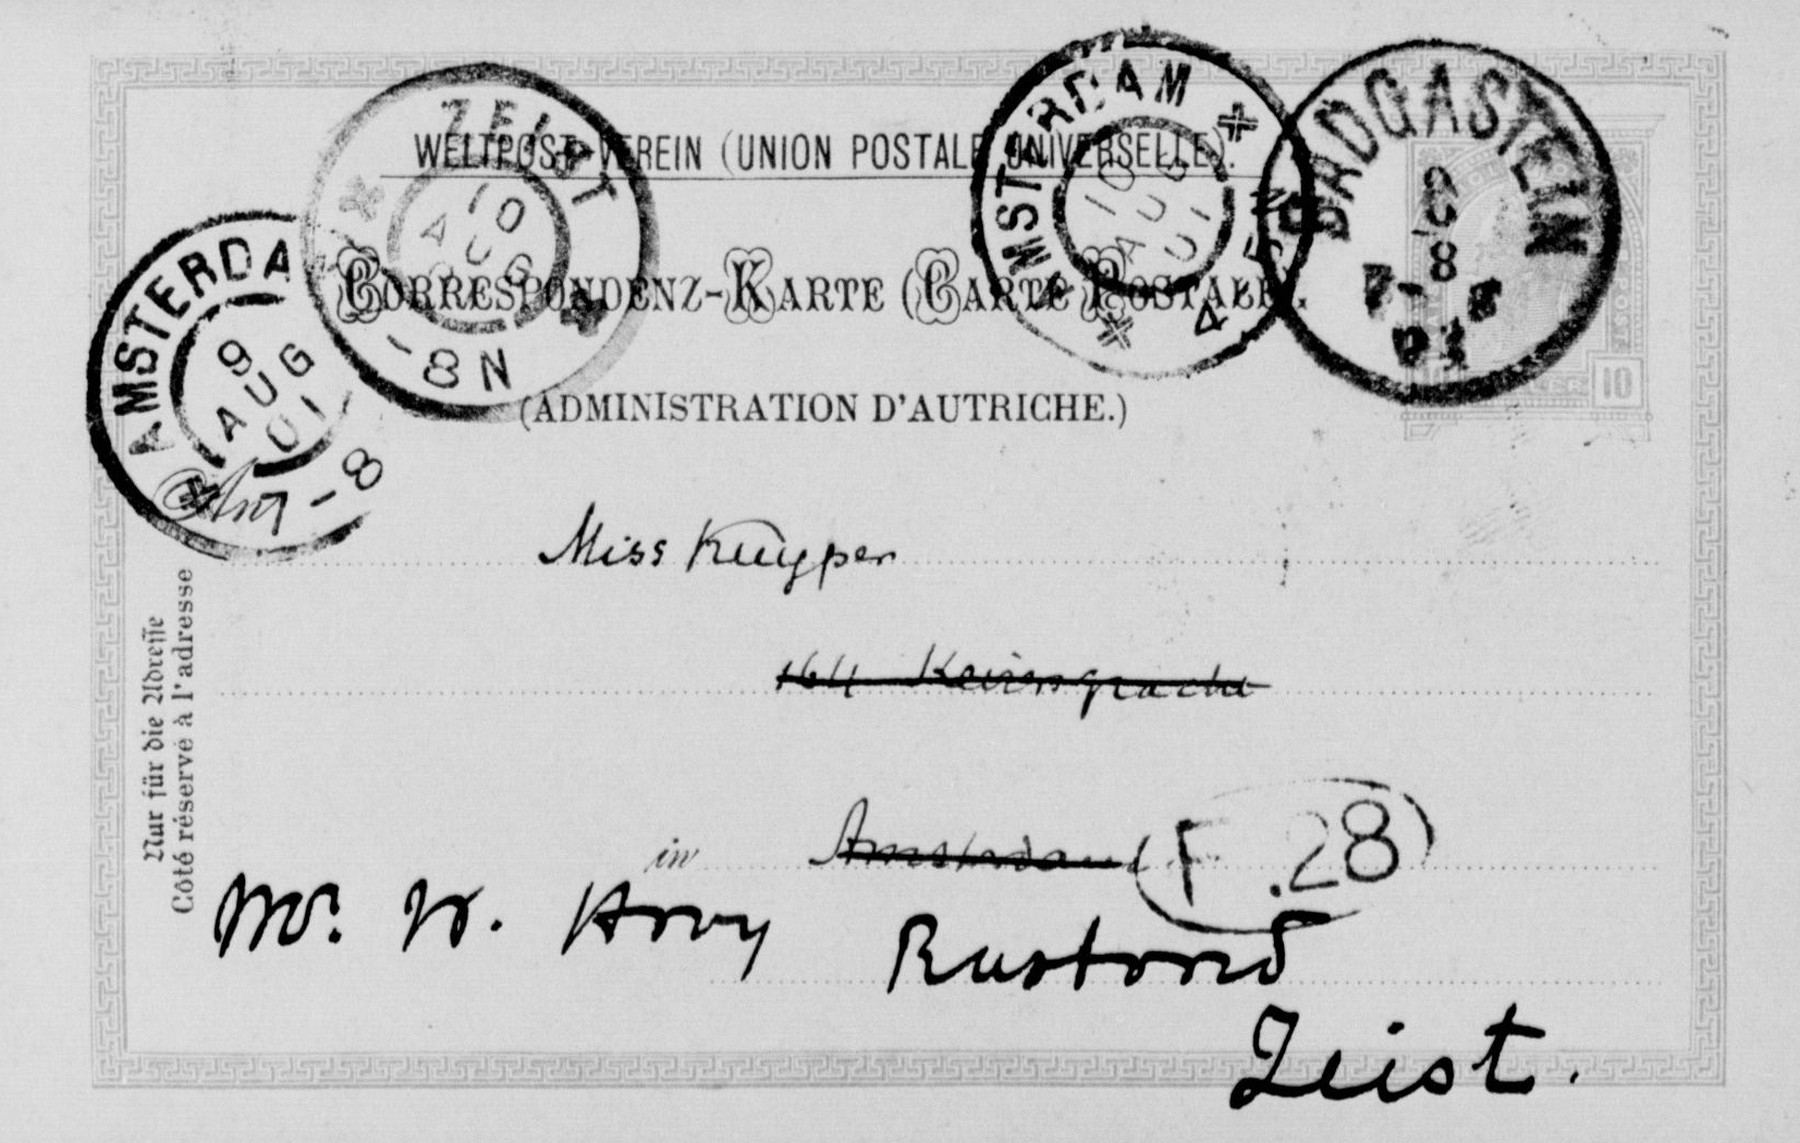 WELTPOST-VEREIN (UNION POSTALE UNIVERSELLE).
CORRESPONDENZ-KARTE (CARTE POSTALE).
(ADMINISTRATION D'AUTRICHE.)
AMSTERDA
9
AUG
01
7-8
ZEIST
10
AUG
-8N
AMSTERDAM
10
AUG
01
4-5N
BADGASTEIN
8
01
10
Nur für die Adresse
Côté réservé à l'adresse
Miss Kuyper
164 Keizersgracht
in Amsterdam
F.28
Mr. W. Hovy Rustoord
Zeist.